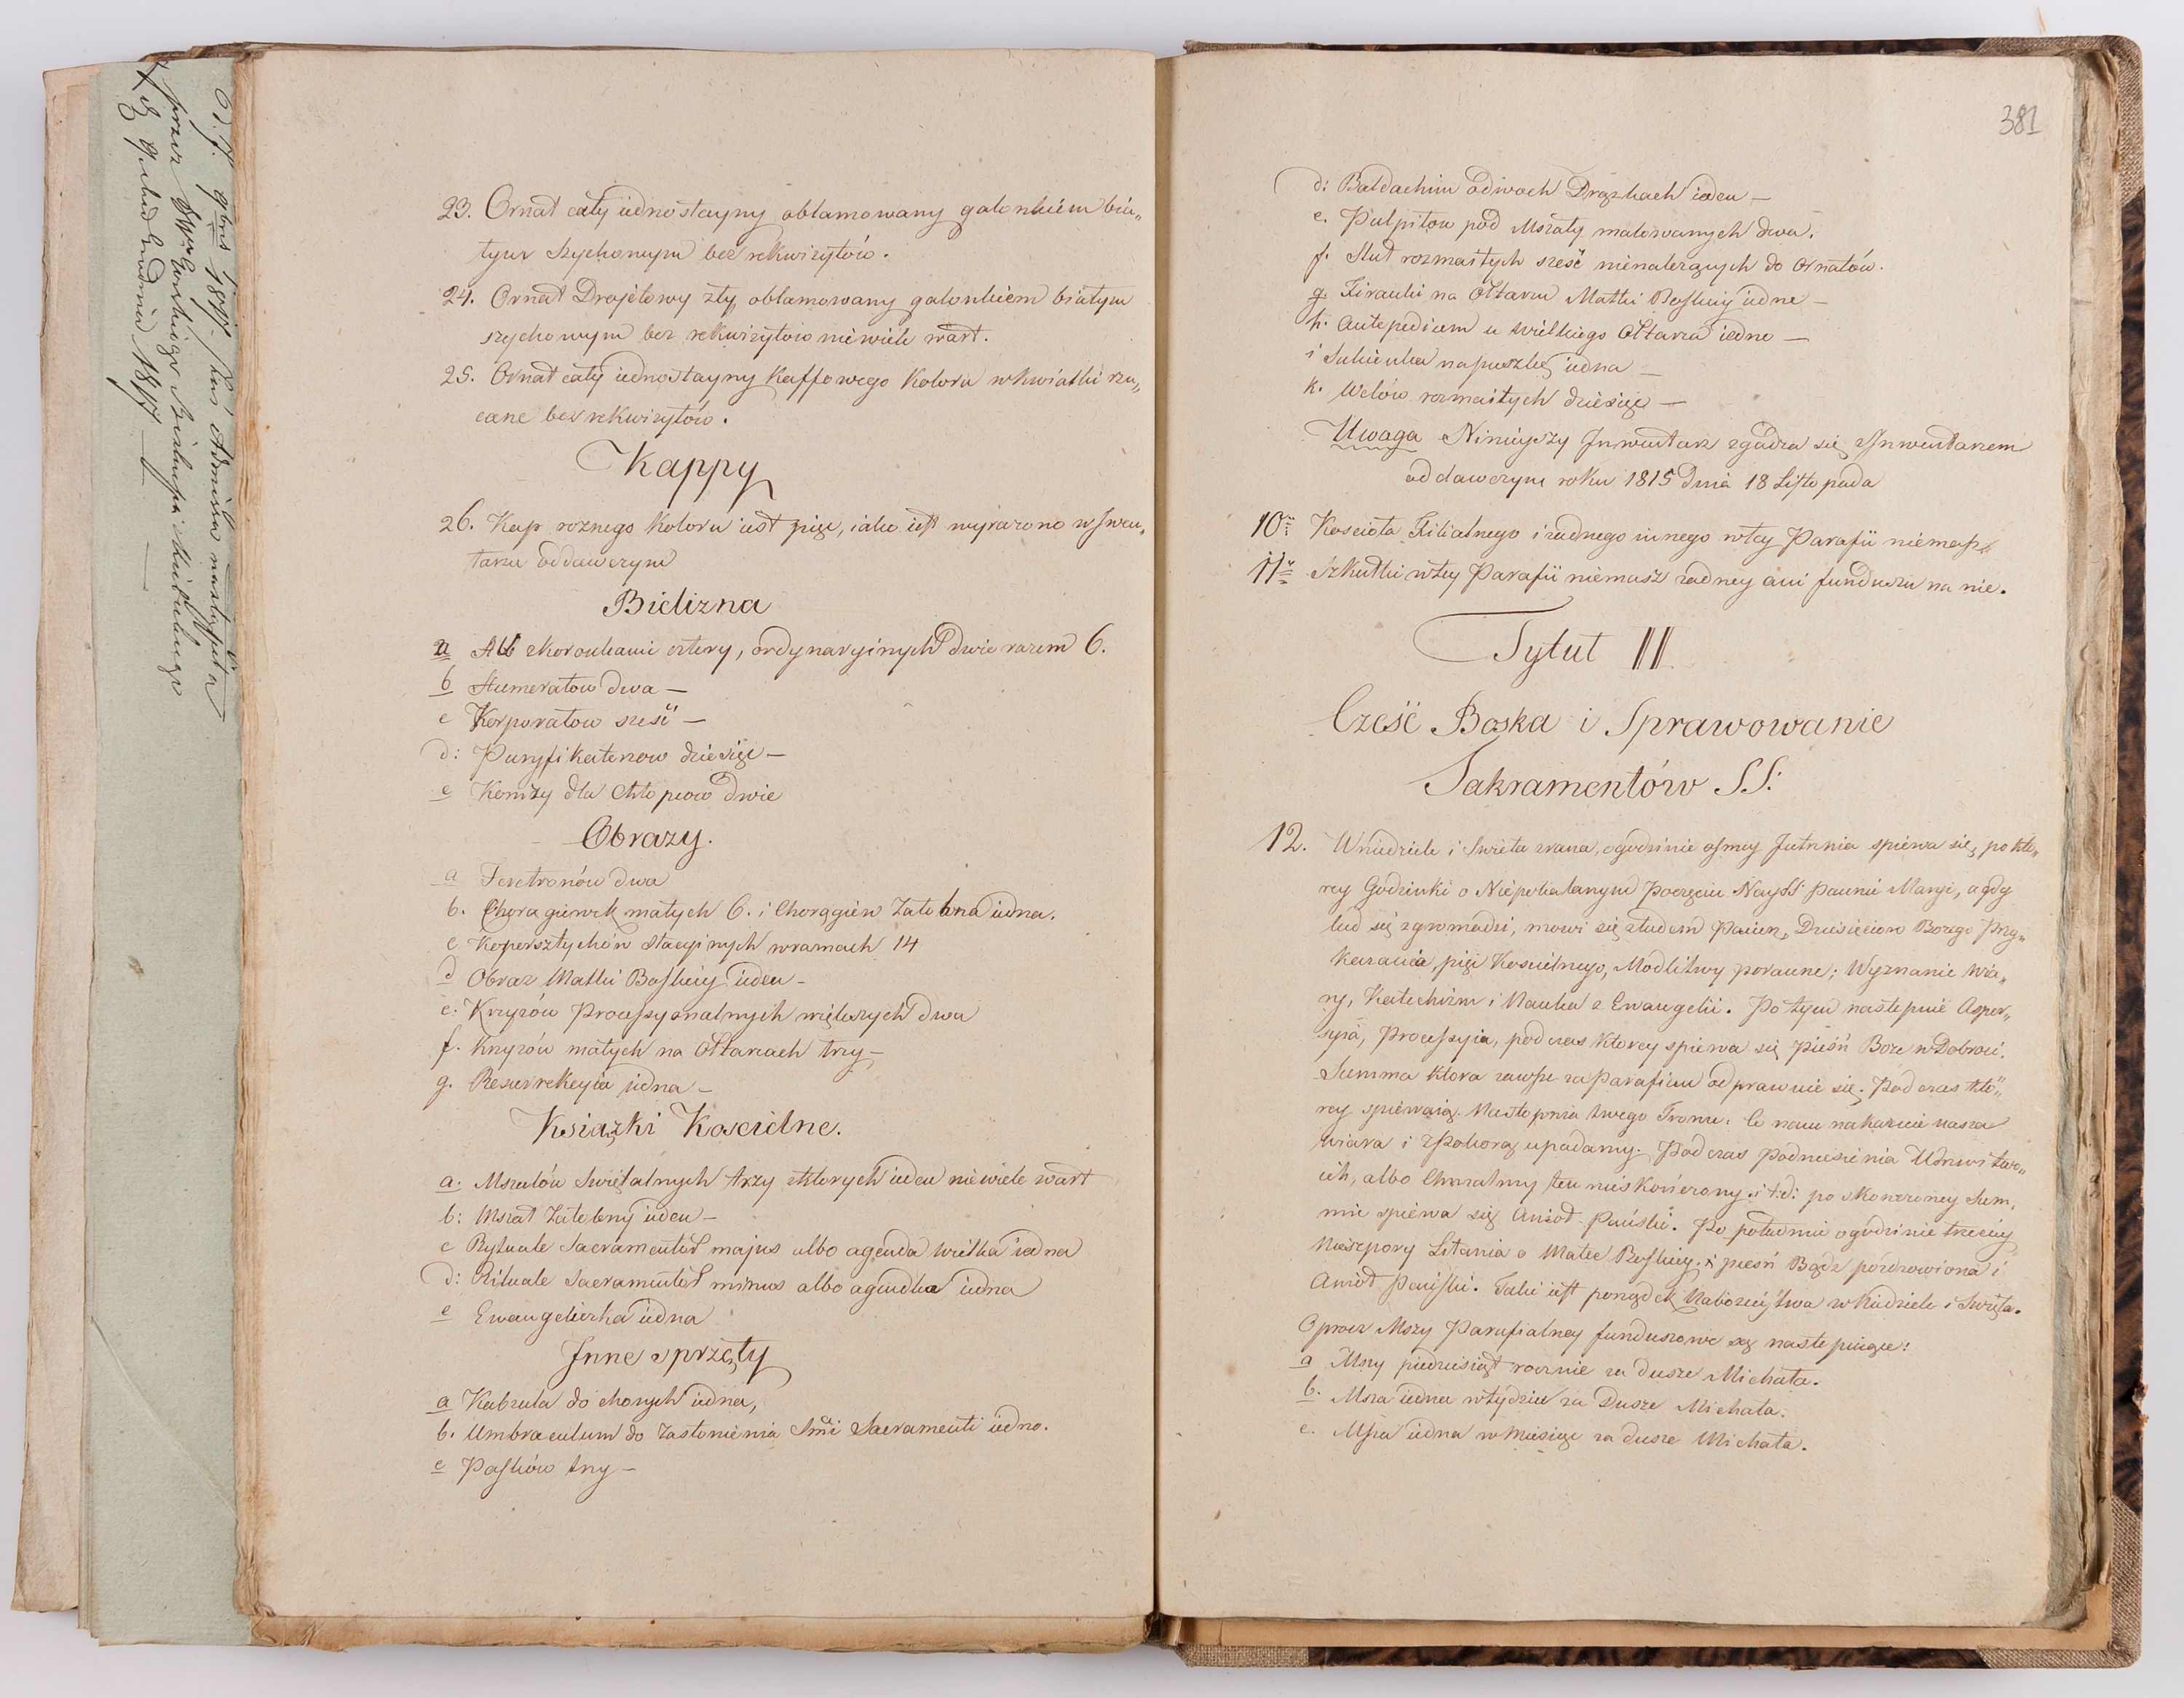 23. Ornat cały iednostayny oblamowany galonkiem bia„
łym szychowym bez rekwizytów.
24. Ornat Drojetowy zły oblamowany galonkiem białym
szychowym bez rekwizytow niewiele wart.
25. Ornat cały iednostayny kaffowego koloru w kwiatki rzu„
cane bez rekwizytów.
Kappy
26. Kap roznego koloru iest pięc, iako iest wyrażono w Jnwen„
tarzu oddawczym
Bielizna
a Alb z koronkami cztery, ordynaryinych dwie razem 6.
b Humeratow dwa —
c Korporałow sześć —
d: Puryfikaterzow dziesięc —
e Komży dla Chłopcow dwie
Obrazy.
a Feretronów dwa
b. Chorągiewek małych 6. i Chorągiew żałobna iedna.
c Kopersztychów stacyinych w ramach 14
d Obraz Matki Boskiey ieden -
e: Krzyżów Processyonalnych większych dwa
f. Krzyżów małych na Ołtarzach trzy —
g. Resurrekcyia iedna —
Ksiażki Koscielne.
a. Mszałów Swiętalnych trzy z ktorych ieden niewiele wart
b: Mszał żałobny ieden —
c Rytuale Sacramentor majus albo agenda wielka iedna
d: Rituale Sacramentor minus albo agendka iedna
e Ewangeliczka iedna
Jnne sprzęty
a Kabzula do chorych iedna,
b. Umbraculum do zasłonienia Smi Sacramenti iedno.
c Pasków trzy —
381
d: Baldachim o dwoch Drążkach ieden —
e. Pulpitow pod Mszały malowanych dwa.
f. Stuł rozmaitych sześć nienależących do Ornatów.
g. Firanki na Ołtarzu Matki Boskiey iedne —
h. Antepedium u wielkiego Ołtarza iedno —
i Sukienka na puszkę iedna —
k. Welów rozmaitych dziesięc —
Uwaga Ninieyszy Jnwentarz zgadza się z Jnwentarzem
oddawczym roku 1815 Dnia 18 Listopada
10. Koscioła Filialnego i żadnego innego w tey Parafii niemasz
11. Szkułki w tey Parafii niemasz żadney ani funduszu na nie.
Tytuł II
Cześć Boska i Sprawowanie
Sakramentów SS:
12. W niedziele i Swieta zrana, o godzinie osmey Jutrznia spiewa się, po kto„
rey Godzinki o Niepokalanym Poczęciu Nayśś Pannie Maryi, a gdy
lud się zgromadzi, mowi się z ludem Pacierz, Dziesięcioro Bożego Przy„
kazania, pięc Koscielnego, Modlitwy poranne; Wyznanie wia„
ry, Katechizm i Nauka z Ewangelii. Po tym nastepuie Asper„
sya, Processyia, podczas ktorey spiewa się pieśń Boże w Dobroci.
Summa ktora zawsze za Parafian odprawuie się. Podczas kto„
rey spiewaią. Na stopniu twego Tronu. Co nam nakazuie nasza
wiara i z Pokorą upadamy. Podczas Podniesienia
ich, albo Chwalmy ten nieskończony. i t:d: po skończoney Sum„
mie spiewa się Anioł Pański. Po południu o godzinie trzeciey
Nieszpory Litania o Matce Boskiey. i pieśń Bądz pozdrowiona i
Anioł Pański. Taki iest porządek Nabożeństwa w Niedziele i Swięta.
Oprocz Mszy Parafialney funduszowe są nastepuiące:
a Mszy piedziesiąt rocznie za dusze Michała.
b. Msza iedna w tydzien za Dusze Michała.
c. Msza iedna w Miesiąc za dusze Michała.